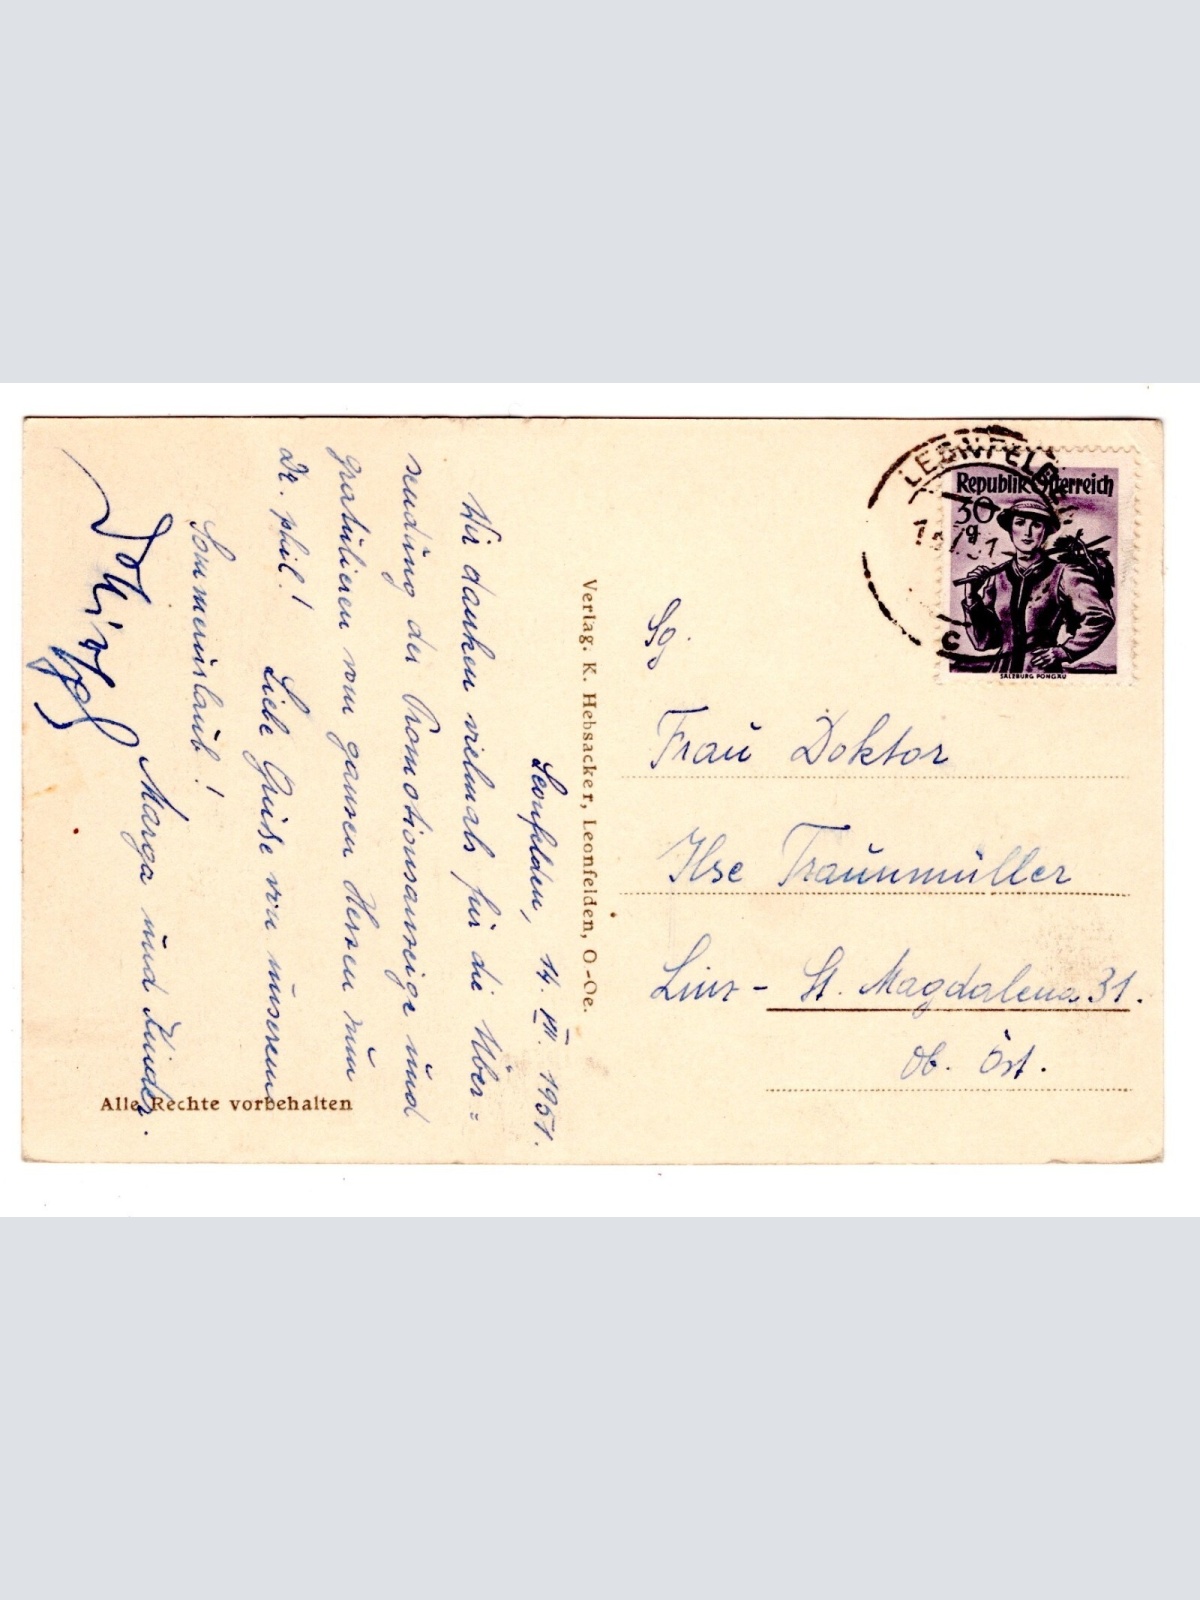 Leonfelden, 14. VII. 1951.
Wir danken vielmals für die Über=
sendung der Promotionsanzeige und
gratulieren von ganzem Herzen zum
Dr. phil.!
Liebe Grüße von unserem
Sommerurlaub!
Marga und Kinder.
Verlag. K. Hebsacker, Leonfelden, O-Oe.
Alle Rechte vorbehalten
LEONFELDEN
c
Republik Österreich
30 g
SALZBURG PONGAU
Sg.
Frau Doktor
Ilse Traunmüller
Linz - St. Magdalena 31.
Ob. Öst.